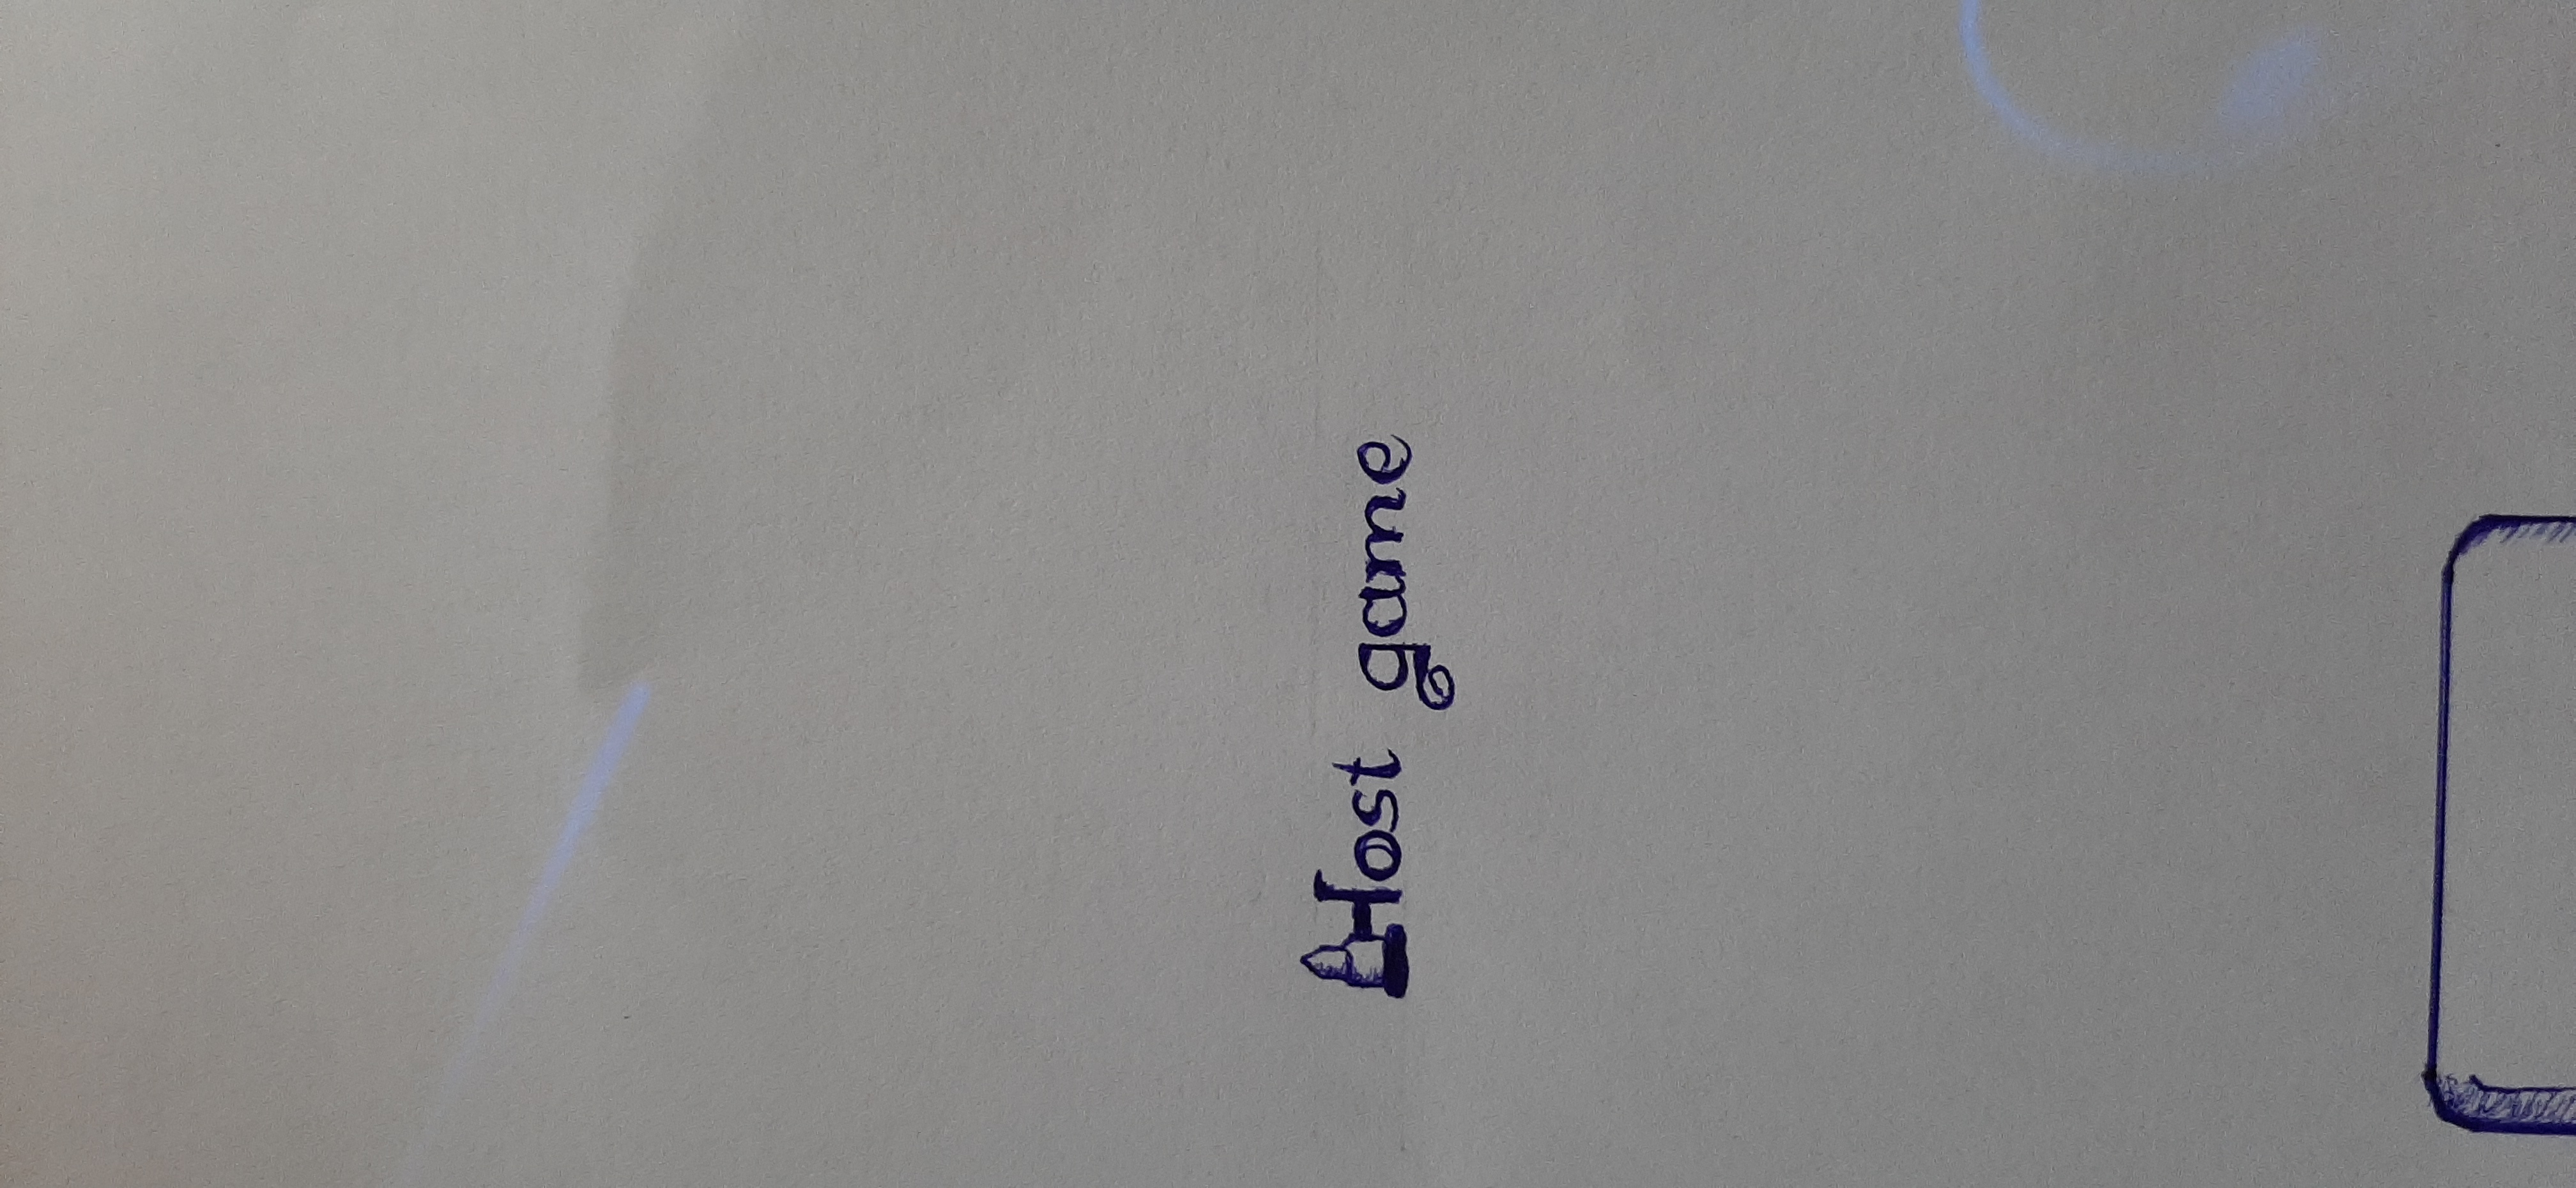 Host game